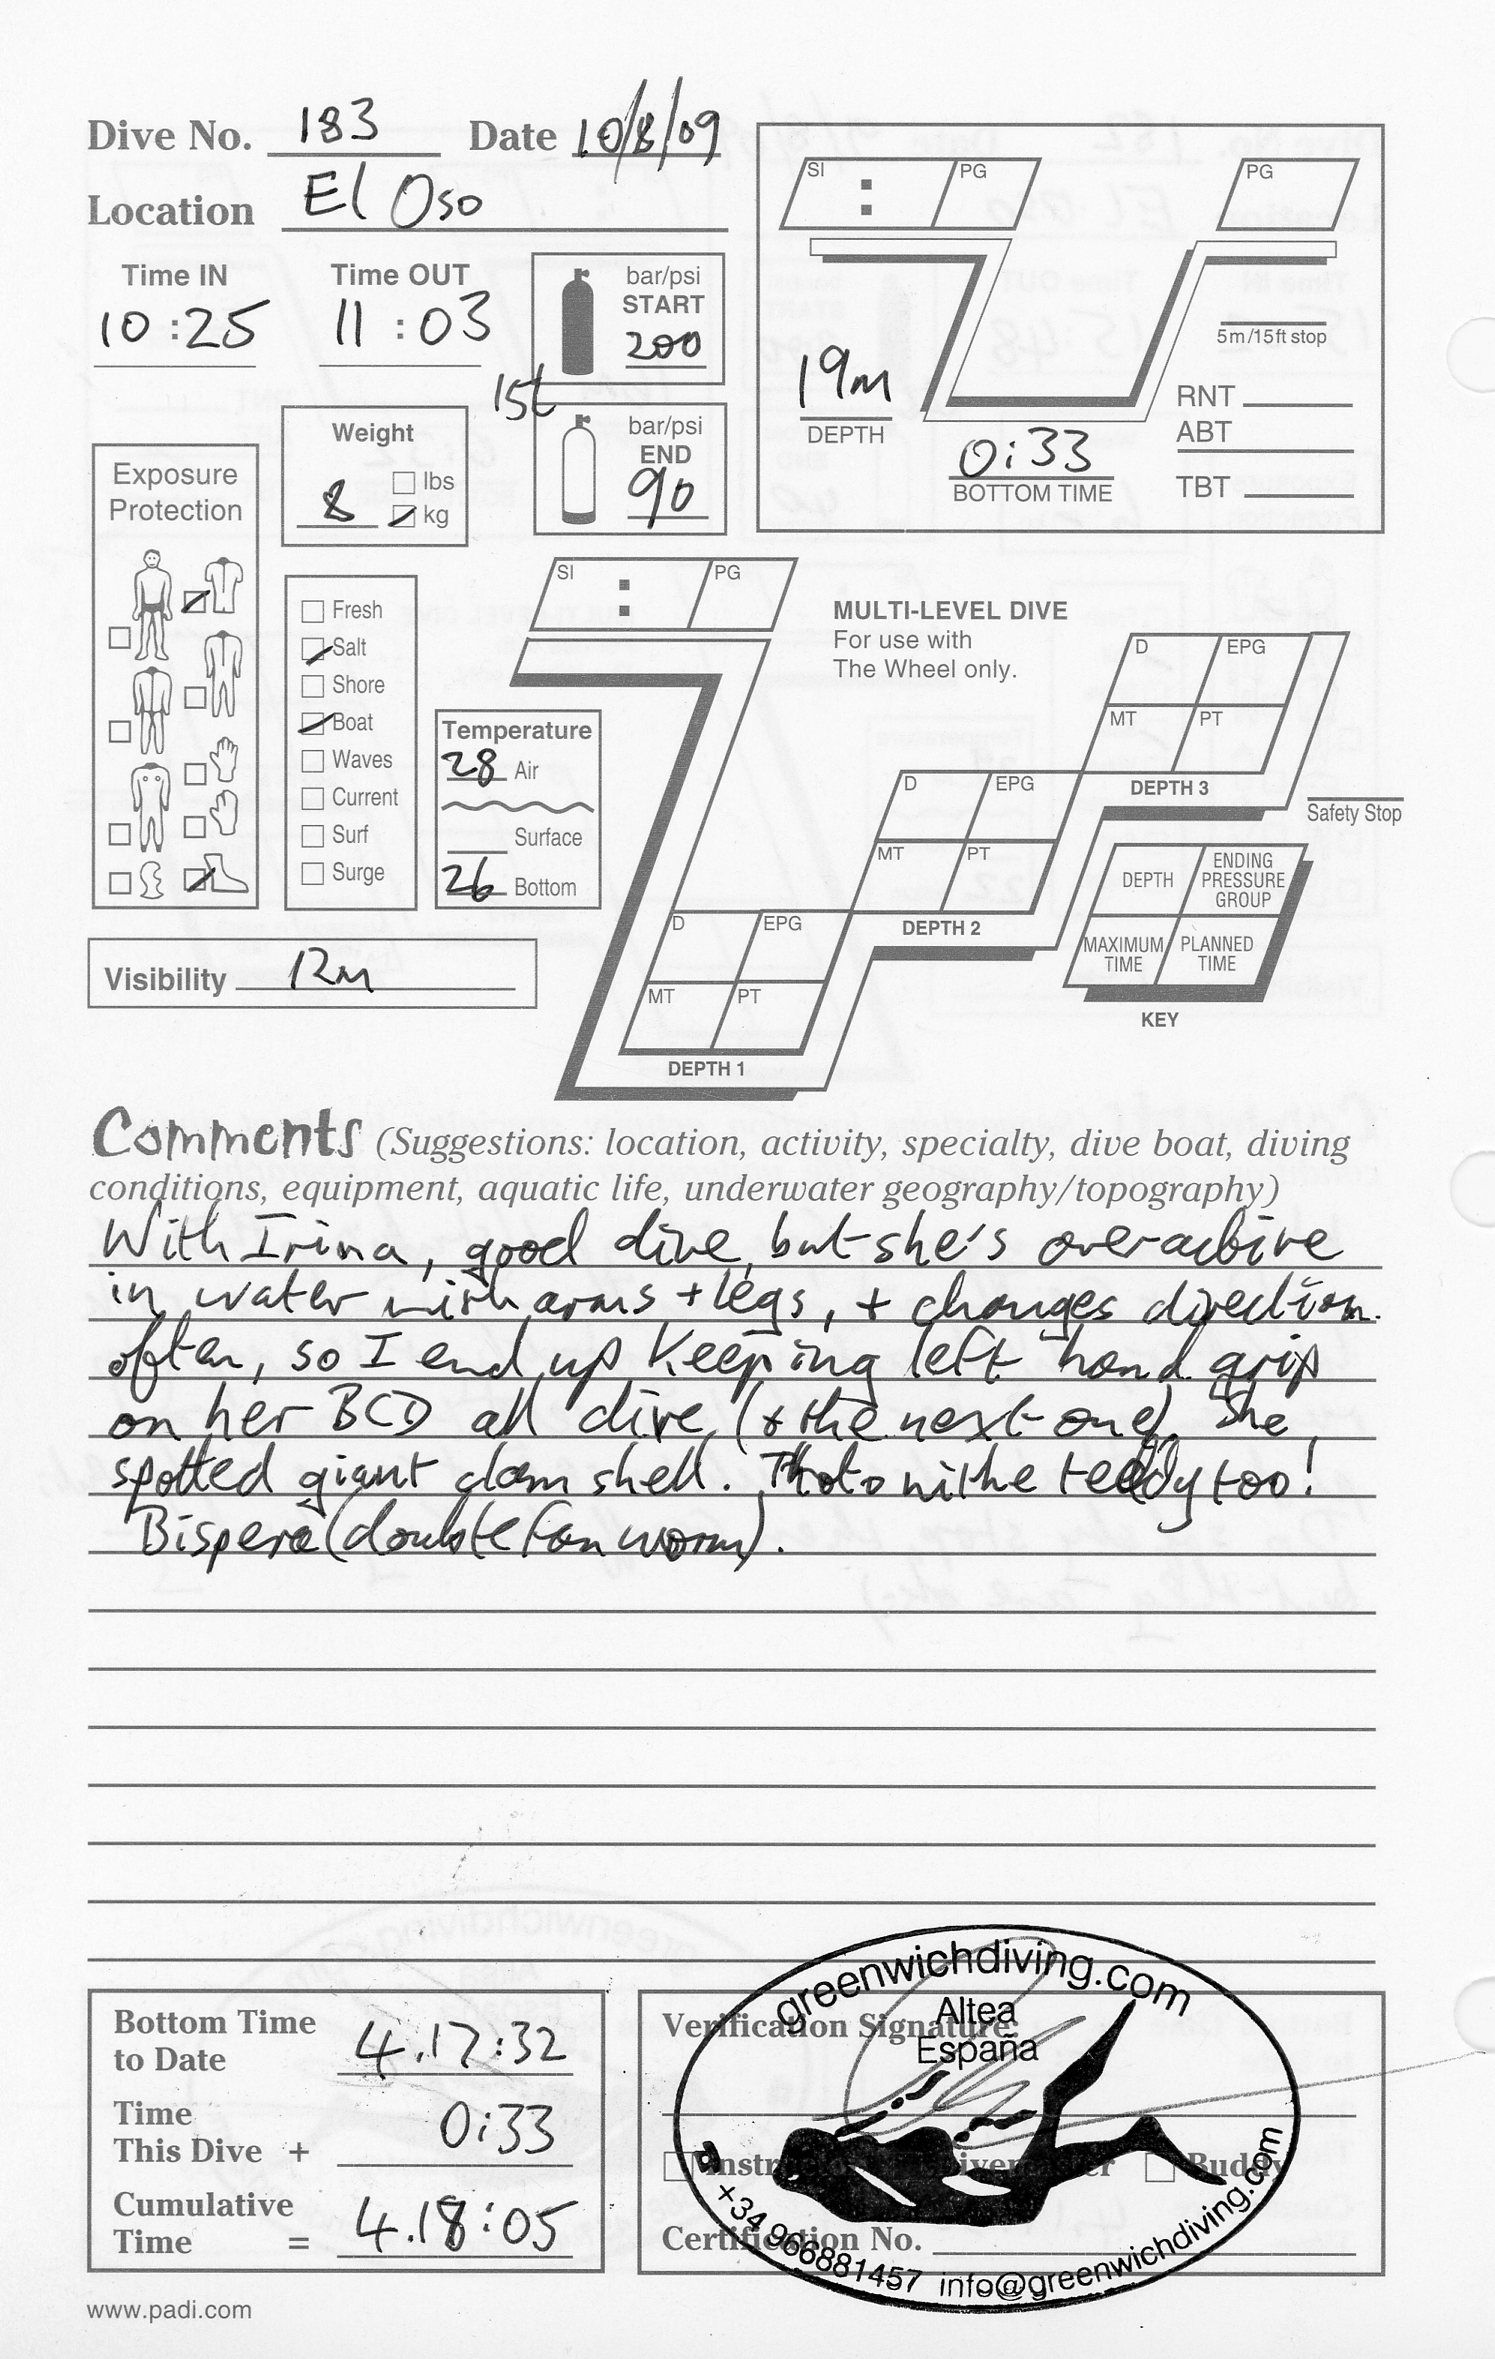 Dive No. 183 Date 10/8/09
Location El Oso
Time IN Time OUT
10:25 11:03
bar/psi
START
200
15l
bar/psi
END
90
Weight
8 lbs
kg
Exposure
Protection
Fresh
Salt
Shore
Boat
Waves
Current
Surf
Surge
Temperature
28 Air
Surface
26 Bottom
Visibility 12m
SI : PG
PG
5m/15ft stop
19m
DEPTH
0:33
BOTTOM TIME
RNT
ABT
TBT
SI : PG
MULTI-LEVEL DIVE
For use with
The Wheel only.
D EPG
MT PT
DEPTH 3
Safety Stop
D EPG
MT PT
DEPTH 2
D EPG
MT PT
DEPTH 1
DEPTH ENDING PRESSURE GROUP
MAXIMUM TIME PLANNED TIME
KEY
Comments (Suggestions: location, activity, specialty, dive boat, diving
conditions, equipment, aquatic life, underwater geography/topography)
With Irina, good dive, but she's overactive
in water with arms + legs, + changes direction
often, so I end up keeping left hand grip
on her BCD all dive (+ the next one). She
spotted giant clam shell. Photo withe teddy too!
Bispera (double fan worm).
Bottom Time
to Date 4.17:32
Time
This Dive + 0:33
Cumulative
Time = 4.18:05
Verification Signature:
Instructor Divemaster Buddy
Certification No.
greenwichdiving.com
Altea
España
+34 966881457 info@greenwichdiving.com
www.padi.com